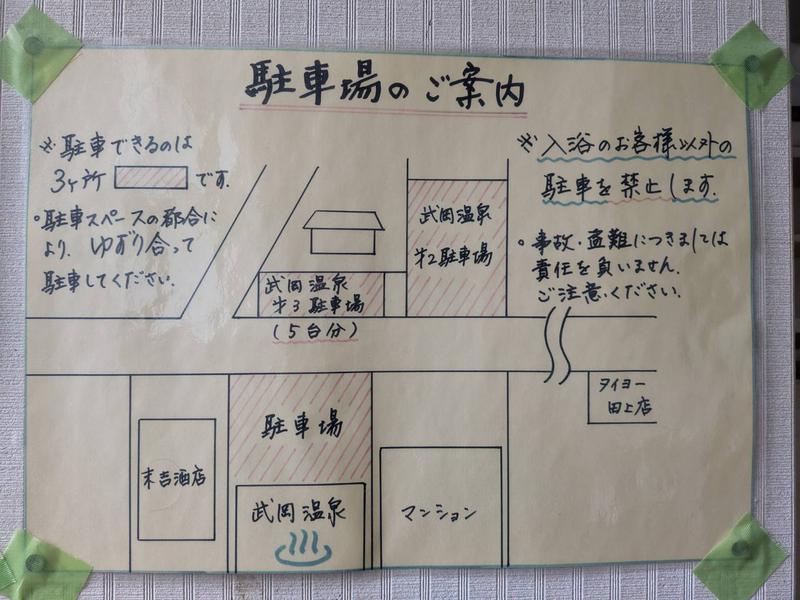 駐車場のご案内
※駐車できるのは
3ヶ所 です.
・駐車スペースの都合に
より、ゆずり合って
駐車してください.
※入浴のお客様以外の
駐車を禁止します.
・事故・盗難につきましては
責任を負いません.
ご注意ください.
武岡温泉
第2駐車場
武岡温泉
第3駐車場
(5台分)
タイヨー
田上店
駐車場
末吉酒店
武岡温泉
マンション